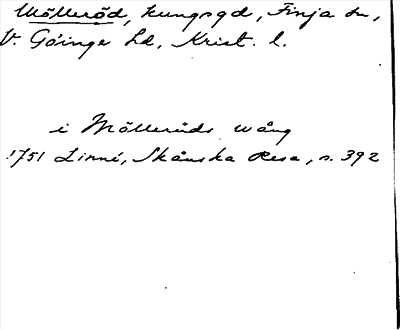 Mölleröd, kungsgd, Finja sn,
V. Göinge hd, Krist. l.
i Mölleröds wång
1751 Linné, Skånska Resa, s. 392